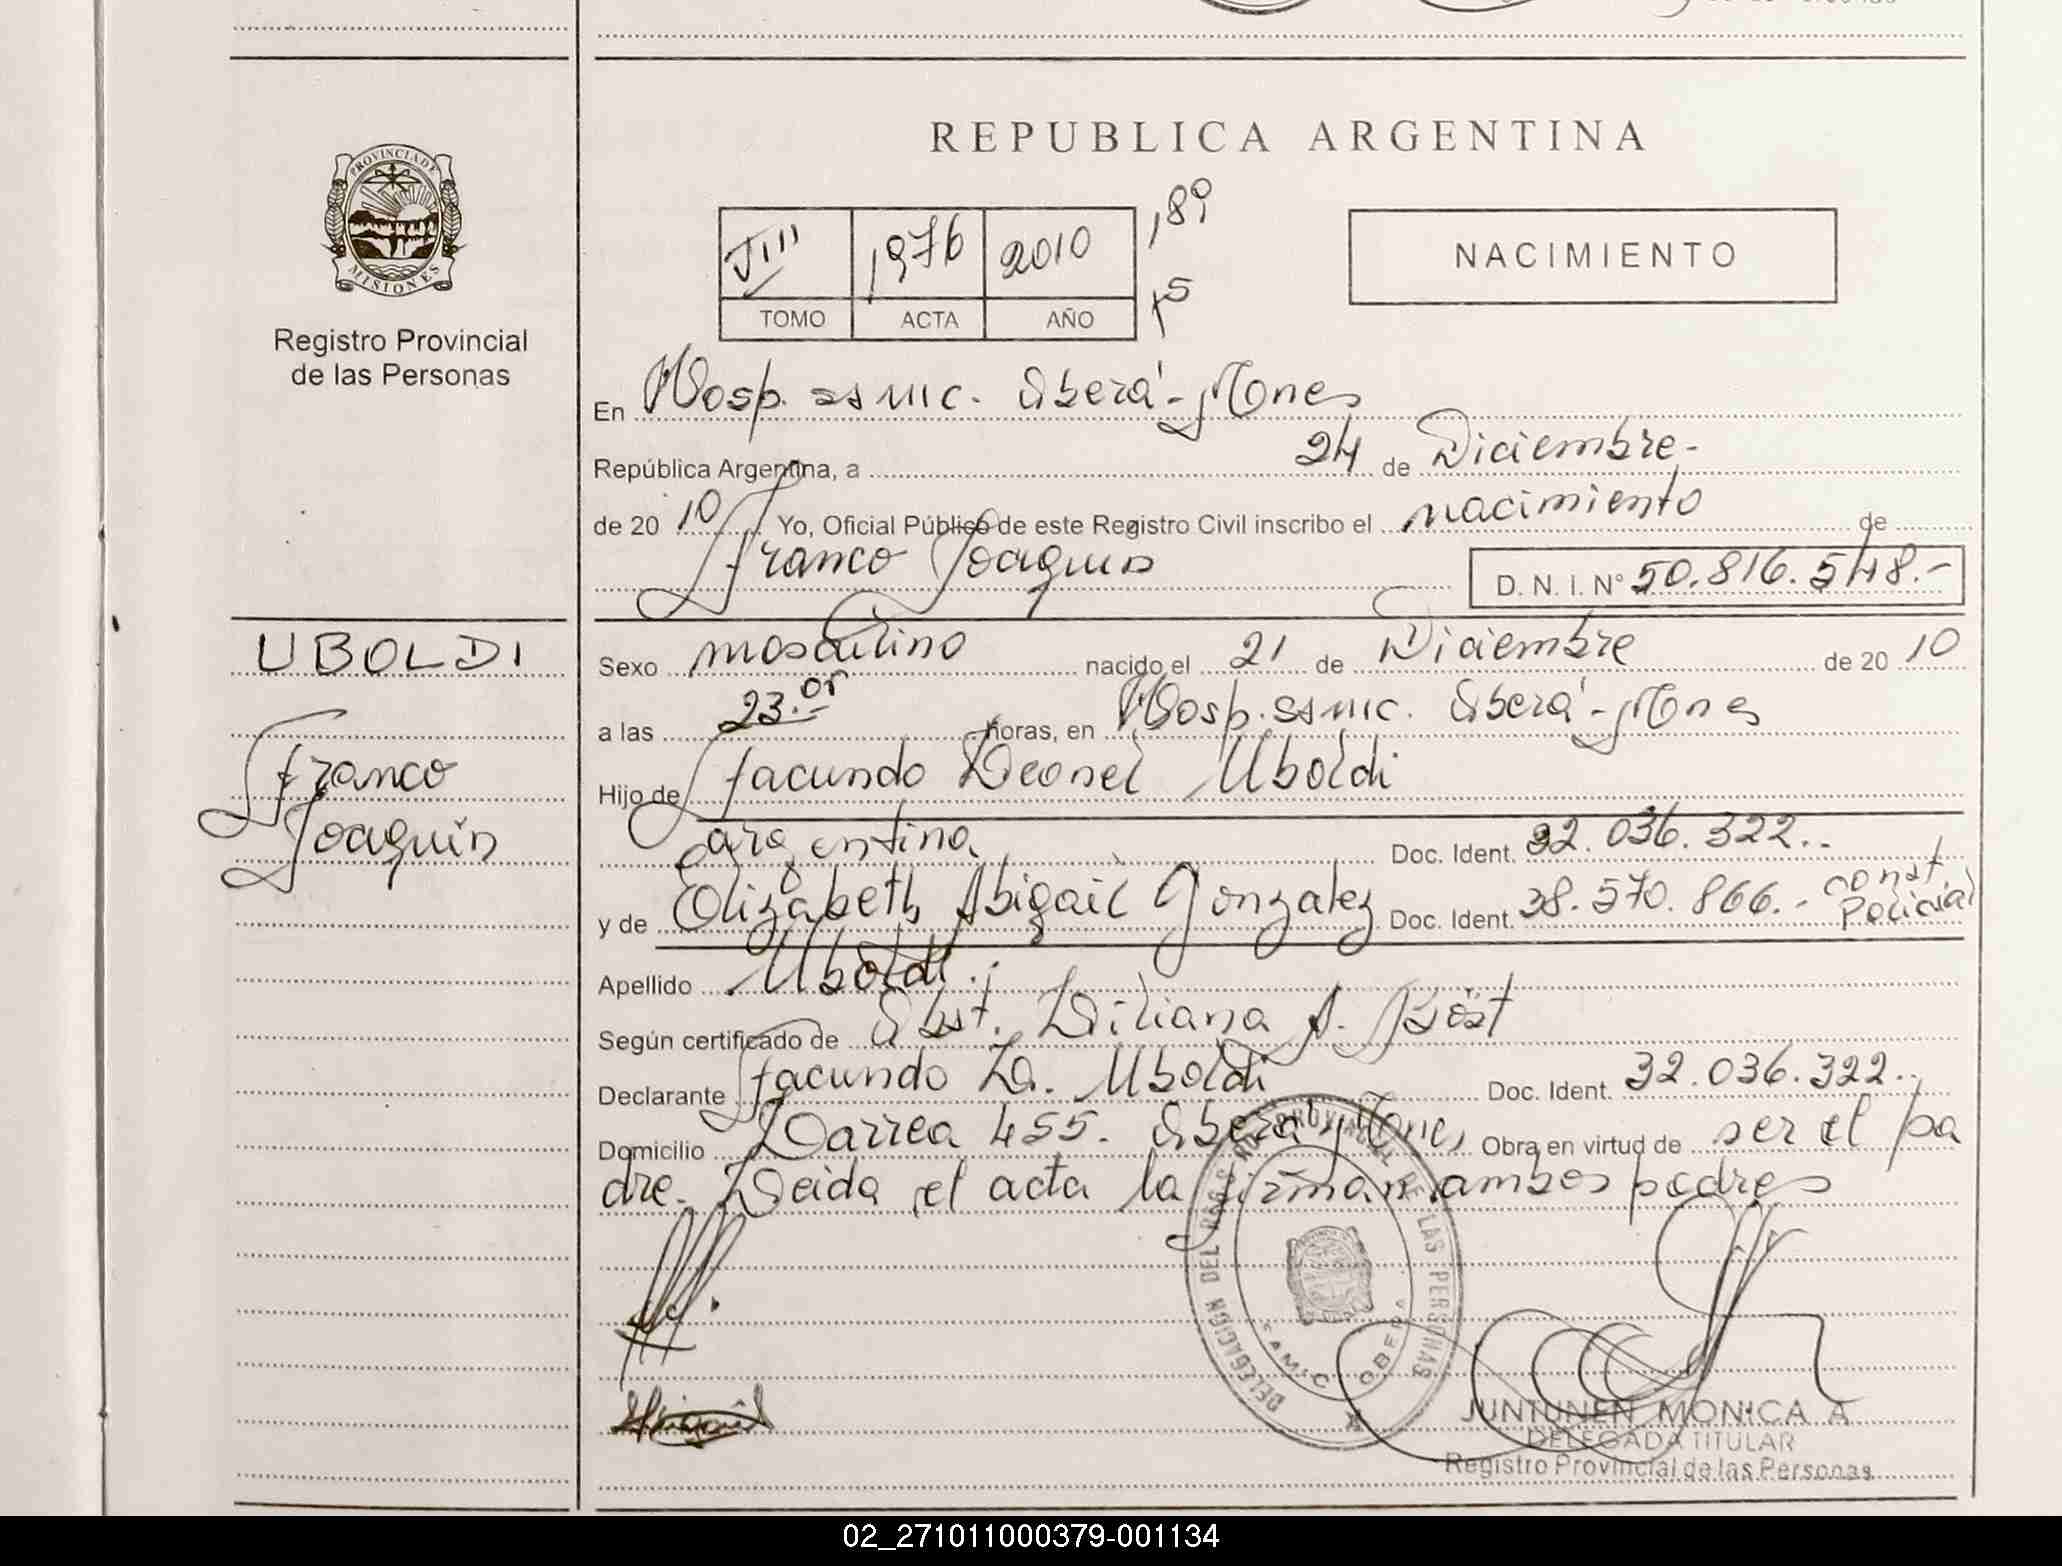 REPUBLICA ARGENTINA
PROVINCIA DE
MISIONES
Registro Provincial
de las Personas
1976 2010
TOMO ACTA AÑO
NACIMIENTO
En Hosp. SAMIC. Oberá - Mones
República Argentina, a 24 de Diciembre -
de 20 10 Yo, Oficial Público de este Registro Civil inscribo el nacimiento de
Franco Joaquin D. N. I. Nº 50.816.548.-
UBOLDI
Franco
Joaquin
Sexo masculino nacido el 21 de Diciembre de 20 10
a las 23. horas, en Hosp. SAMIC. Oberá - Mones
Hijo de Facundo Leonel Uboldi
argentino. Doc. Ident. 32.036.322..
y de Elizabeth Abigail Gonzalez Doc. Ident. 38.570.866.- const Policial
Apellido Uboldi.:
Según certificado de Obst. Liliana A. Böst
Declarante Facundo L. Uboldi Doc. Ident. 32.036.322..
Domicilio Larrea 455. Oberá Mones Obra en virtud de ser el pa
dre. Leida el acta la firman ambos padres
DELEGACION DEL REG. PROVINCIAL DE LAS PERSONAS
SAMIC OBERA
JUNTUNEN MONICA A
DELEGADA TITULAR
Registro Provincial de las Personas
02_271011000379-001134